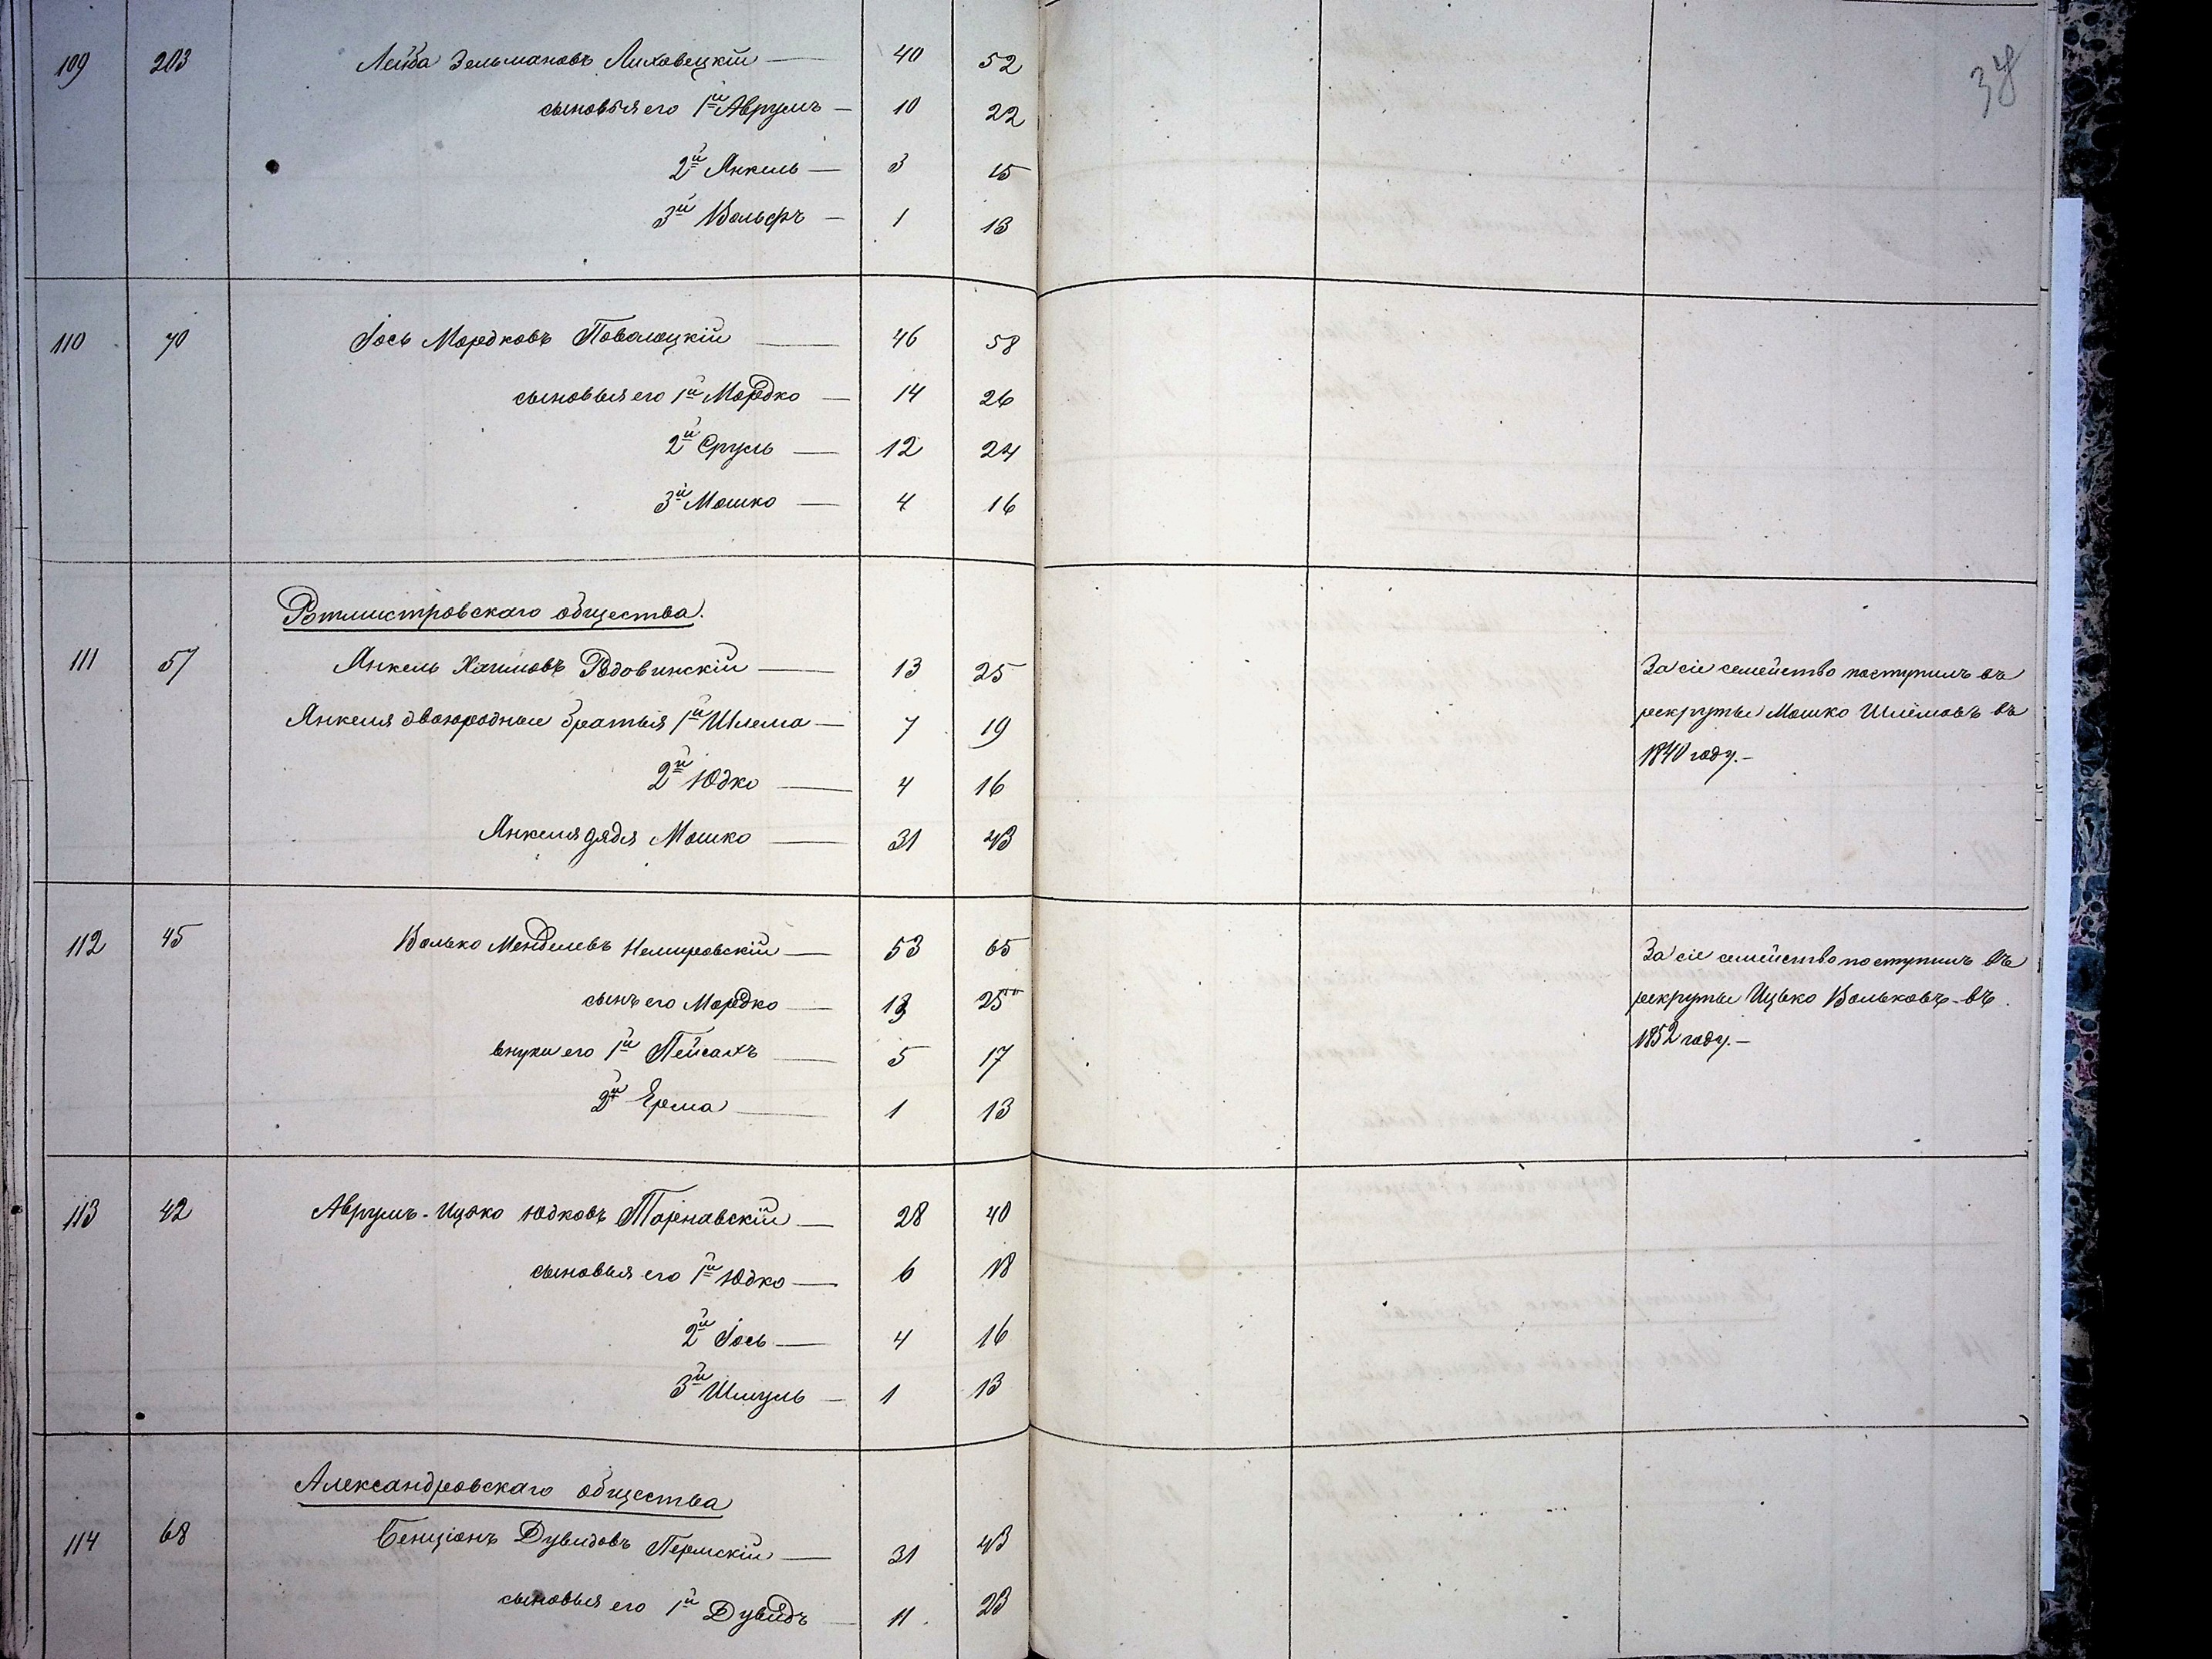 38
109 203 Лейба Зельмановъ Лиховецкій — 40 52
сыновья его 1й Аврумъ — 10 22
2й Янкель — 3 15
3й Вольфъ — 1 13
110 70 Іось Мордковъ Поволоцкій — 46 58
сыновья его 1й Мордко — 14 26
2й Сруль — 12 24
3й Мошко — 4 16
Ротмистровскаго общества.
111 57 Янкель Хаимовъ Вдовинскій — 13 25 За сіе семейство поступилъ въ
Янкеля двоюродные братья 1й Шлема — 7 19 рекруты Мошко Шлёмовъ въ
1840 году.—
2й Юдко — 4 16
Янкеля дядя Мошко — 31 43
112 45 Волько Менделевъ Немировскій — 53 65 За сіе семейство поступилъ въ
сынъ его Мордко — 13 25 рекруты Ицько Вольковъ въ
1852 году.—
внуки его 1й Пейсахъ — 5 17
2й Ерма — 1 13
113 42 Аврумъ-Ицько Юдковъ Тарнавскій — 28 40
сыновья его 1й Юдко — 6 18
2й Іось — 4 16
3й Шмуль — 1 13
Александровскаго общества
114 68 Бенціонъ Дувидовъ Пермскій — 31 43
сыновья его 1й Дувидъ — 11 23